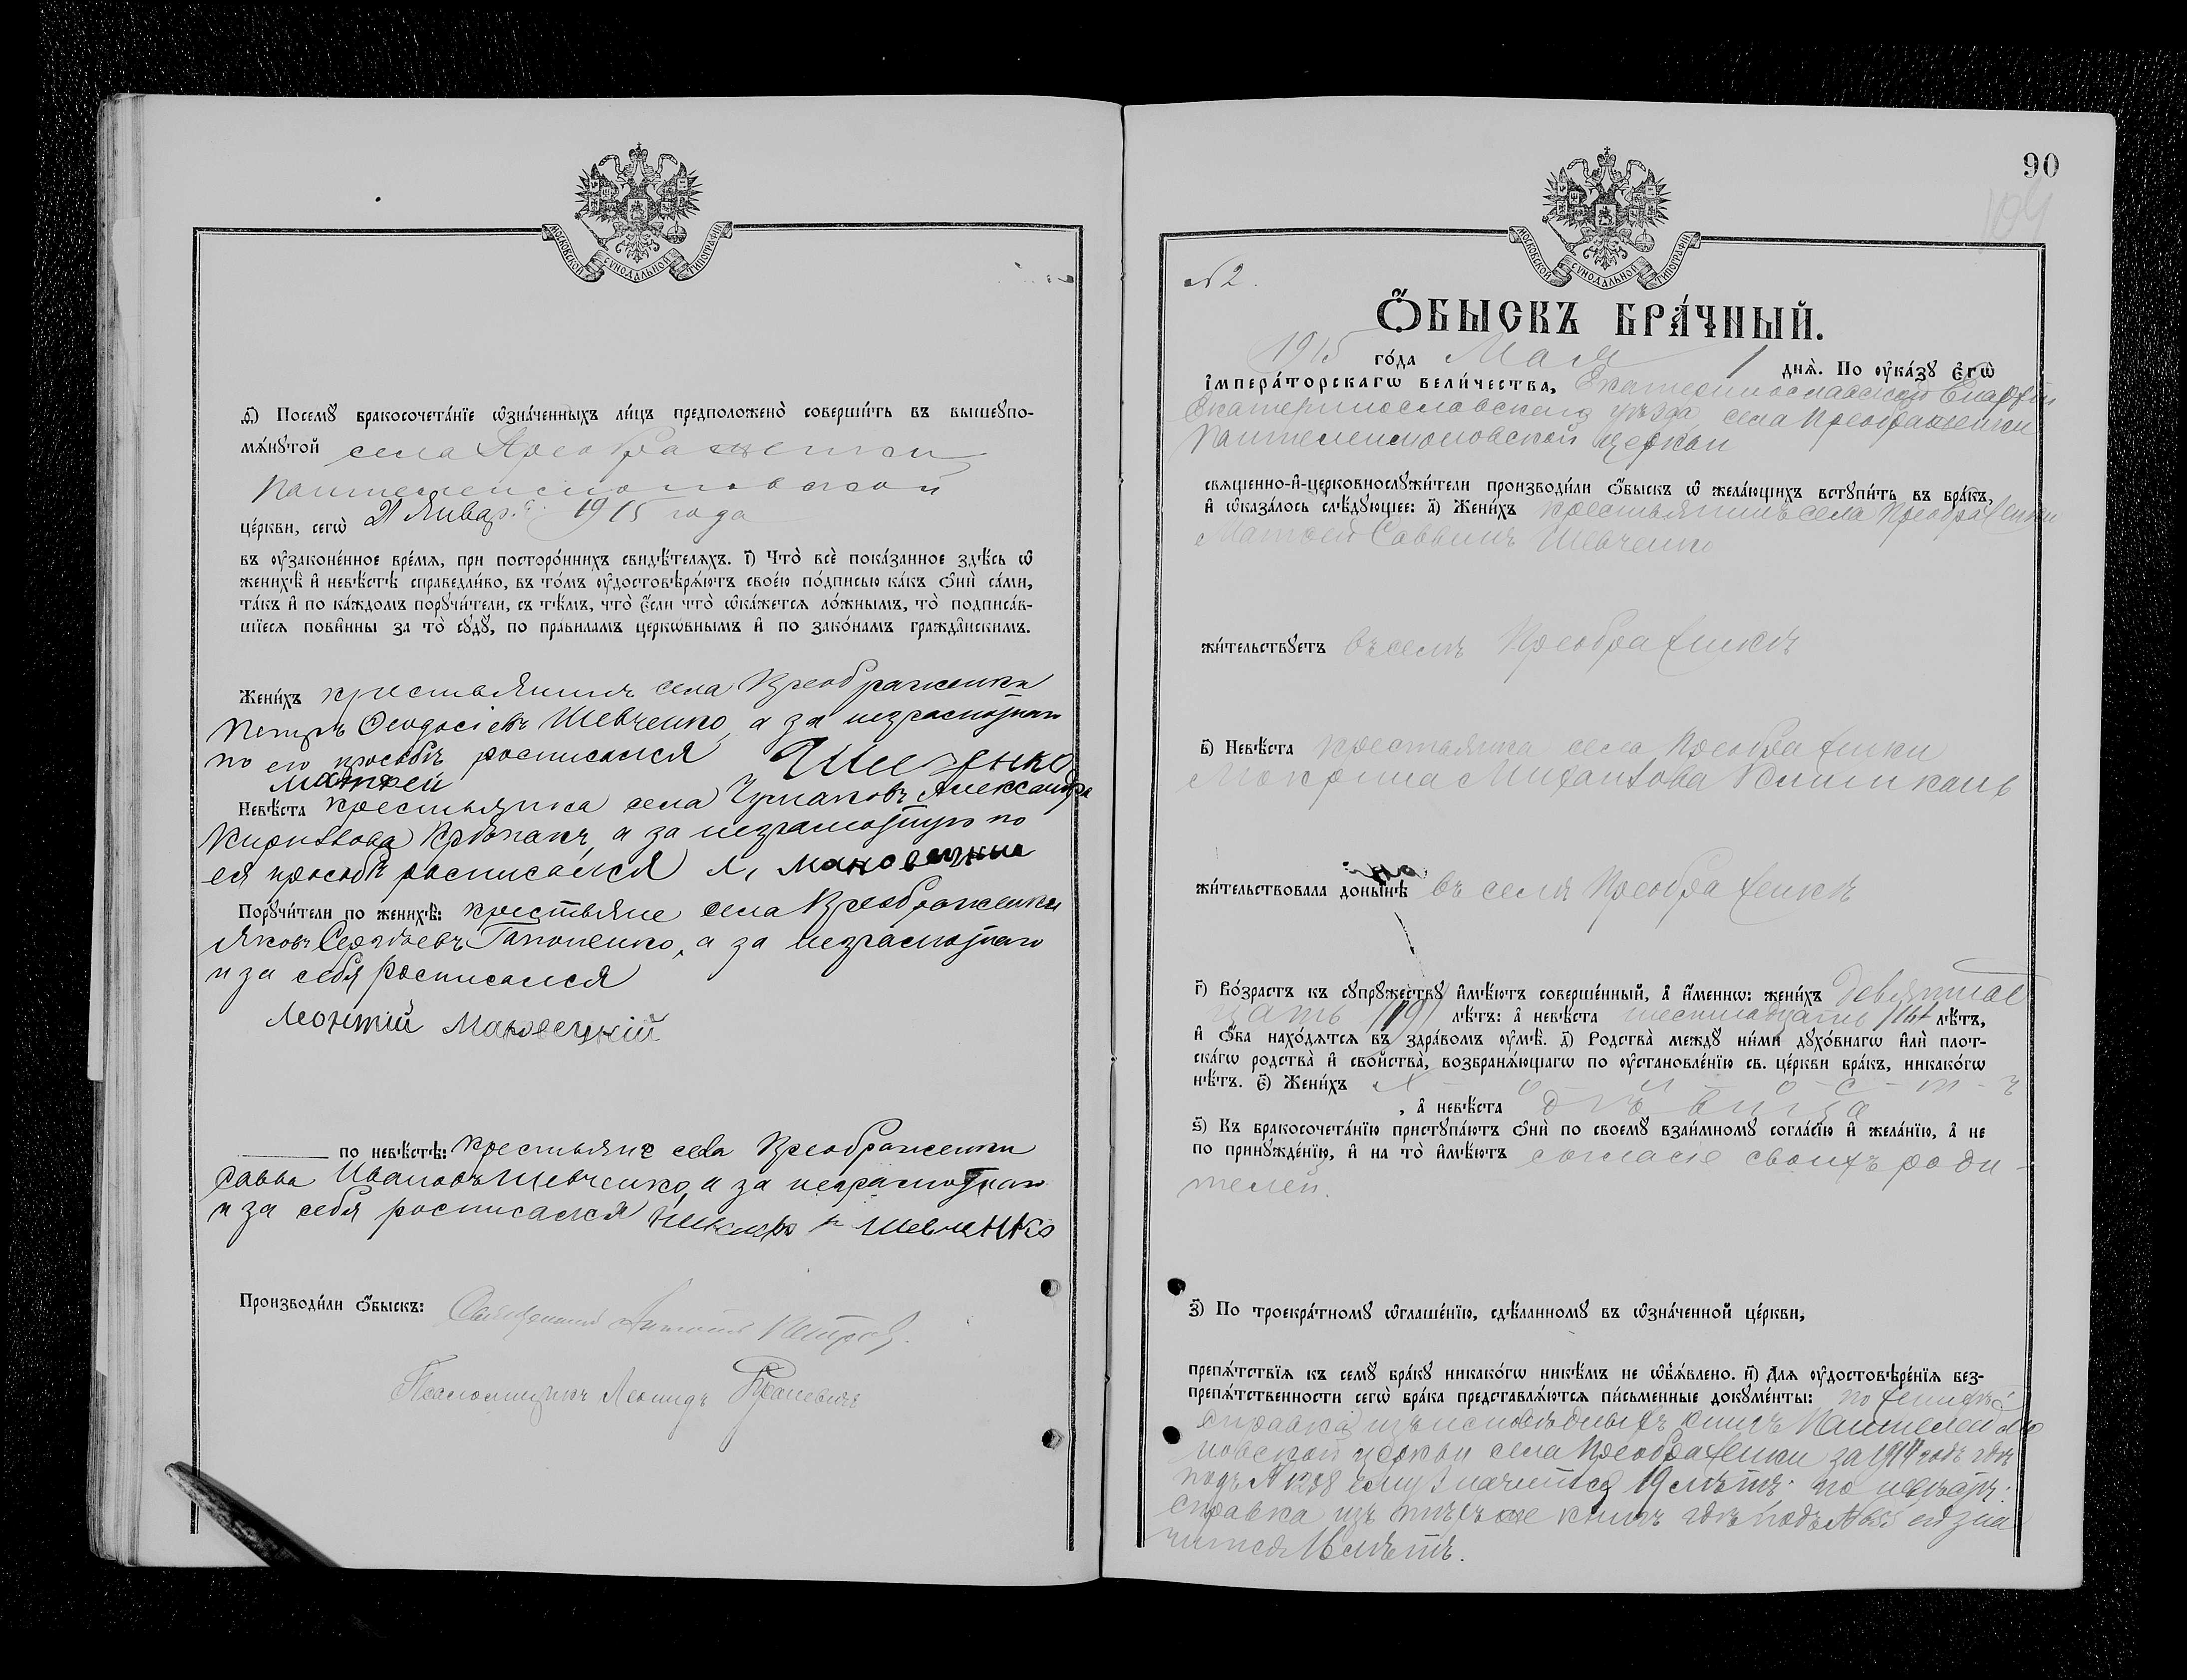 МОСКОВСКОЙ СУНОДАЛЬНОЙ ТИПОГРАФІИ
д҃) Посемꙋ бракосочета́нїе ѡ҆зна́ченныхъ ли́цъ предположено̀ соверши́ть въ вышеꙋпо-
мѧ́нꙋтой села Преображенки
Пантелеимоновской
це́ркви, сегѡ̀ 21 Января 1915 года
въ ѹ҆законе́нное вре́мѧ, при посторо́ннихъ свидѣ́телѧхъ. і҃) Что̀ всѐ пока́занное здѣ́сь ѡ҆
женихѣ̀ и҆ невѣ́стѣ справедли́во, въ то́мъ ѹ҆достовѣрѧ́ютъ свое́ю по́дписью ка́къ ѻ҆нѝ са́ми,
та́къ и҆ по ка́ждомъ порꙋчи́тели, съ тѣ́мъ, что̀ є҆́сли что̀ ѡ҆ка́жетсѧ ло́жнымъ, то̀ подписа́в-
шїесѧ пови́нны за то̀ сꙋдꙋ̀, по пра́виламъ церко́внымъ и҆ по зако́намъ гражда́нскимъ.
Жени́хъ крестьянинъ села Преображенки
Петръ Ѳеодосіевъ Шевченко, а за неграмотнаго
по его просьбѣ росписался
Матѳей
Невѣ́ста крестьянка села Чумаковъ Александра
Кириллова а за неграмотную по
ея просьбѣ росписался Я,
Порꙋчи́тели по женихѣ̀: крестьяне села Преображенки
Яковъ Сергѣевъ Гапоненко, а за неграмотнаго
и за себя росписался
Леонтій Маковецкій
по невѣ́стѣ: крестьяне села Преображенки
Савва Ивановъ Шевченко, а за неграмотнаго
и за себя росписался Шевченко
Производи́ли ѻ҆́быскъ: Священникъ Антоній
Псаломщикъ Леонидъ
90
109
МОСКОВСКОЙ СУНОДАЛЬНОЙ ТИПОГРАФІИ
№ 2.
Ѻ҆́БЫСКЪ БРА́ЧНЫЙ.
1915 го́да Мая 1 днѧ̀. По ѹ҆ка́зꙋ Є҆гѡ̀
І҆мпера́торскагѡ вели́чества, Екатеринославской Епархіи
Екатеринославскаго уѣзда, села Преображенки
Пантелеимоновской Церкви
свѧще́нно-и҆-церковнослꙋжи́тели производи́ли ѻ҆́быскъ ѡ҆ жела́ющихъ встꙋпи́ть въ бра́къ,
и҆ ѡ҆каза́лось слѣ́дꙋющее: а҃) Жени́хъ крестьянинъ села Преображенки
Матѳей Саввинъ Шевченко
жи́тельствꙋетъ въ селѣ Преображенкѣ
в҃) Невѣ́ста крестьянка села Преображенки
Мокрина Михаилова
жи́тельствовала доны́нѣ въ селѣ Преображенкѣ
г҃) Во́зрастъ къ сꙋпрꙋ́жествꙋ и҆мѣ́ютъ соверше́нный, а҆ и҆́менно: жени́хъ девятнад-
цать /19/ лѣ́тъ: а҆ невѣ́ста шестнадцать /16/ лѣ́тъ,
и҆ ѻ҆́ба нахо́дѧтсѧ въ здра́вомъ ѹ҆мѣ̀. д҃) Родства̀ междꙋ̀ ни́ми дꙋхо́внагѡ и҆лѝ плот-
ска́гѡ родства̀ и҆ сво́йства̀, возбранѧ́ющагѡ по ѹ҆становле́нїю св. це́ркви бра́къ, никако́гѡ
нѣ́тъ. є҃) Жени́хъ х о л о с т ъ
, а҆ невѣ́ста дѣвица
ѕ҃) Къ бракосочета́нїю пристꙋпа́ютъ ѻ҆нѝ по своемꙋ̀ взаи́мномꙋ согла́сїю и҆ жела́нїю, а҆ не
по принꙋжде́нїю, и҆ на то̀ и҆мѣ́ютъ согласіе своихъ роди-
телей.
з҃) По троекра́тномꙋ ѡ҆глаше́нїю, сдѣ́ланномꙋ въ ѡ҆зна́ченной це́ркви,
препѧ́тствїѧ къ семꙋ̀ бра́кꙋ никако́гѡ никѣ́мъ не ѡ҆б̾ѧ́влено. и҃) Длѧ ѹ҆достовѣре́нїѧ без-
препѧ́тственности сегѡ̀ бра́ка представлѧ́ютсѧ пи́сьменные докꙋме́нты: по женихѣ
справка изъ исповѣдныхъ книгъ Пантелеимо
новской церкви села Преображенки за 1914 годъ гдѣ
подъ № ему значится 19 лѣтъ; по невѣстѣ:
справка изъ тѣхъ же книгъ гдѣ подъ № ей зна
чится 16 лѣтъ.